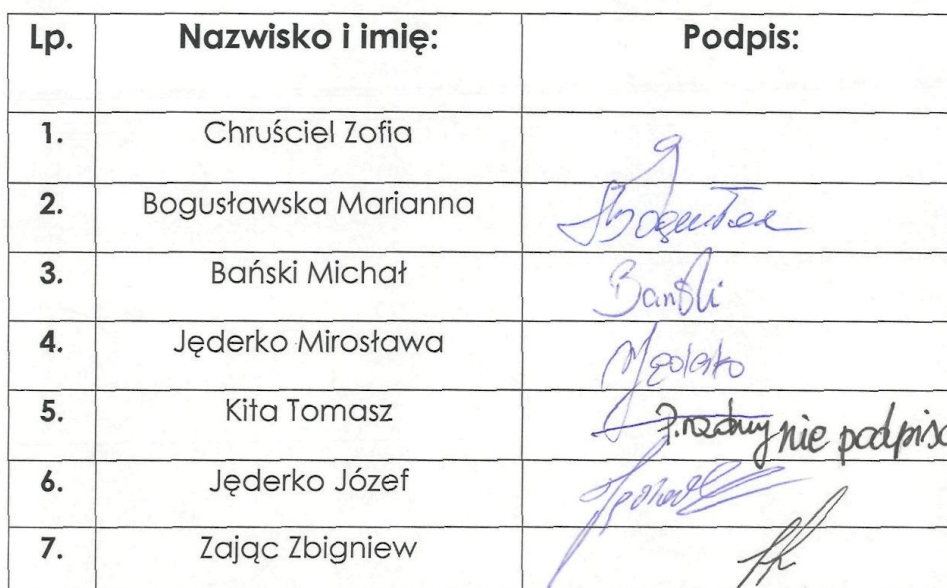 Lp. Nazwisko i imię: Podpis:
1. Chruściel Zofia
2. Bogusławska Marianna
3. Bański Michał Bański
4. Jęderko Mirosława
5. Kita Tomasz nie podpisa
6. Jęderko Józef
7. Zając Zbigniew